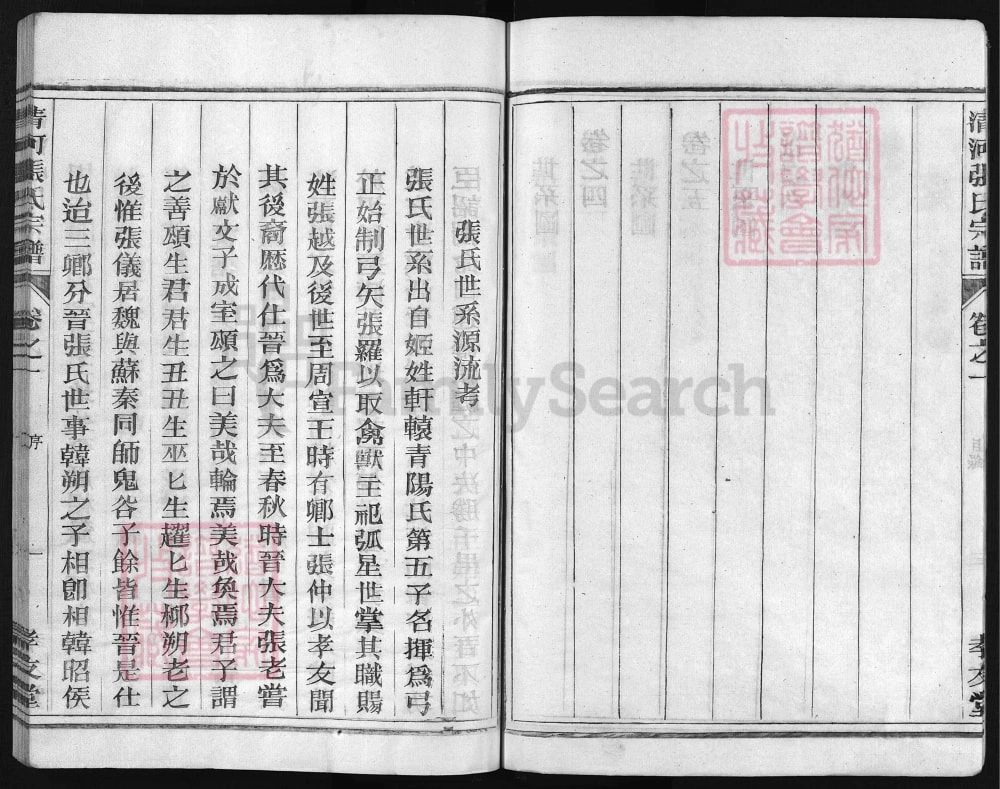 清河張氏宗譜
卷之一
孝友堂
張氏世系源流考
張氏世系出自姬姓軒轅青陽氏第五子名揮爲弓
正始制弓矢張羅以取禽獸主祀弧星世掌其職賜
姓張越及後世至周宣王時有卿士張仲以孝友聞
其後裔歷代仕晉爲大夫至春秋時晉大夫張老嘗
於獻文子成室頌之曰美哉輪焉美哉奐焉君子謂
之善頌生君君生丑丑生巫匕生趯匕生柳朔老之
後惟張儀居魏與蘇秦同師鬼谷子餘皆惟晉是仕
也迨三卿分晉張氏世事韓朔之子相卽相韓昭侯
清河張氏宗譜
卷之一
序
一
孝友堂
FamilySearch